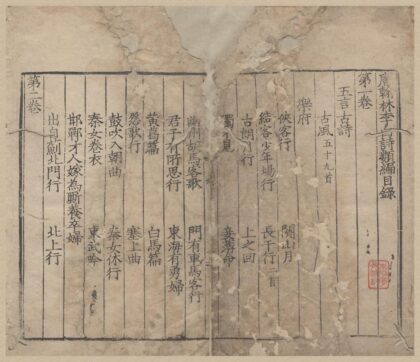 唐翰林李白詩類編目錄
第一卷
五言古詩
古風五十九首
樂府
俠客行 關山月
結客少年場行 長干行二首
古朗月行 上之回
見 妾薄命
幽州胡馬客歌 門有車馬客行
君子有所思行 東海有勇婦
黃葛篇 白馬篇
怨歌行 塞上曲
鼓吹入朝曲 秦女休行
秦女卷衣 東武吟
邯鄲才人嫁為廝養卒婦
出自薊北門行 北上行
第二卷